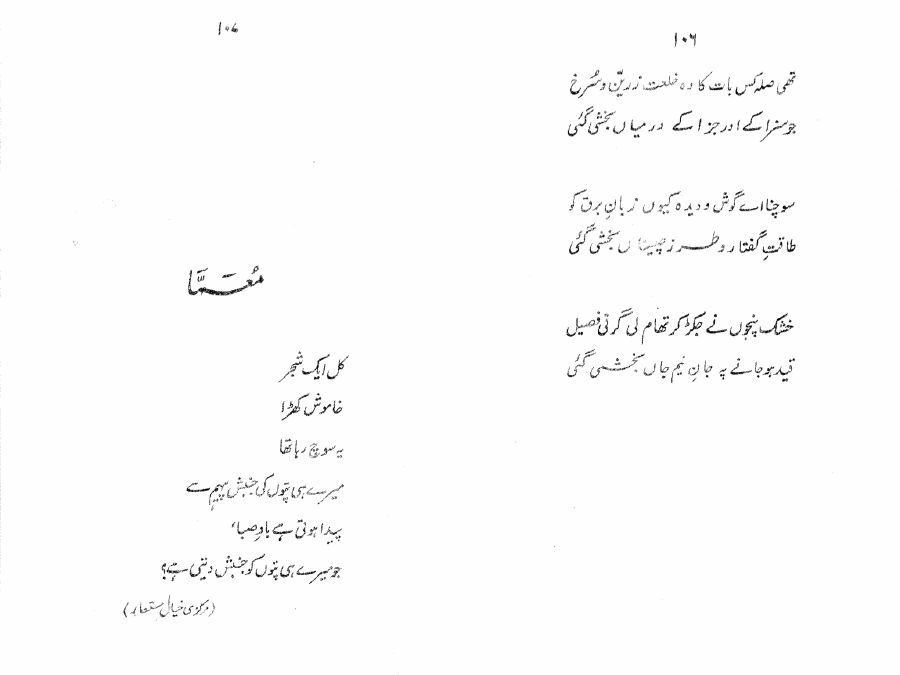 ۱۰۶
تھی صلہ کس بات کا وہ خلعت زریّں و سُرخ
جو سزا کے اور جزا کے درمیاں بخشی گئی
سوچنا اے گوش و دیدہ کیوں زبانِ برق کو
طاقتِ گفتار و طرز چیستاں بخشی گئی
خشک پنجوں نے جکڑ کر تھام لی گرتی فصیل
قید ہو جانے پہ جانِ نیم جاں بخشی گئی
۱۰۷
مُعَمَّا
کل ایک شجر
خاموش کھڑا
یہ سوچ رہا تھا
میرے ہی پتوں کی جنبش پیہم سے
پیدا ہوتی ہے بادِ صبا،
جو میرے ہی پتوں کو جنبش دیتی ہے؟
(مرکزی خیال مستعار)